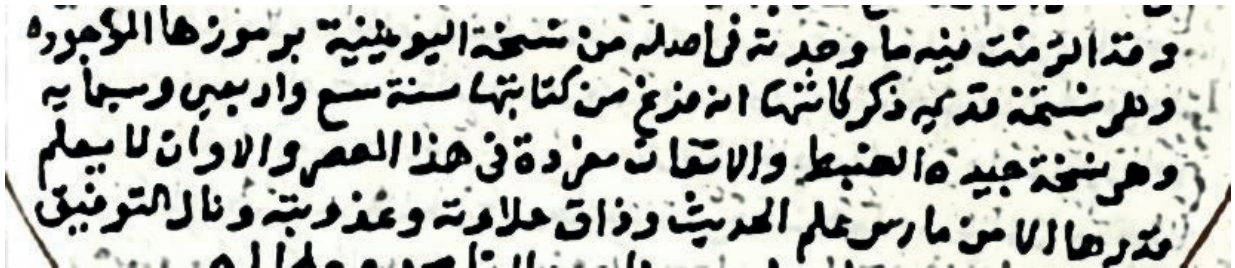 وقد التزمت فيه ما وجدته في اصله من نسخة اليونينية برموزها الموجوده
وهي نسخة قديمه ذكر كاتبها انه فرغ من كتابتها سنة سبع واربعين وسبمايه
وهي نسخة جيده الضبط والاتقان مفردة في هذا العصر والاوان لا يعلم
قدرها الا من مارس علم الحديث وذاق حلاوته وعذوبته ونال التوفيق